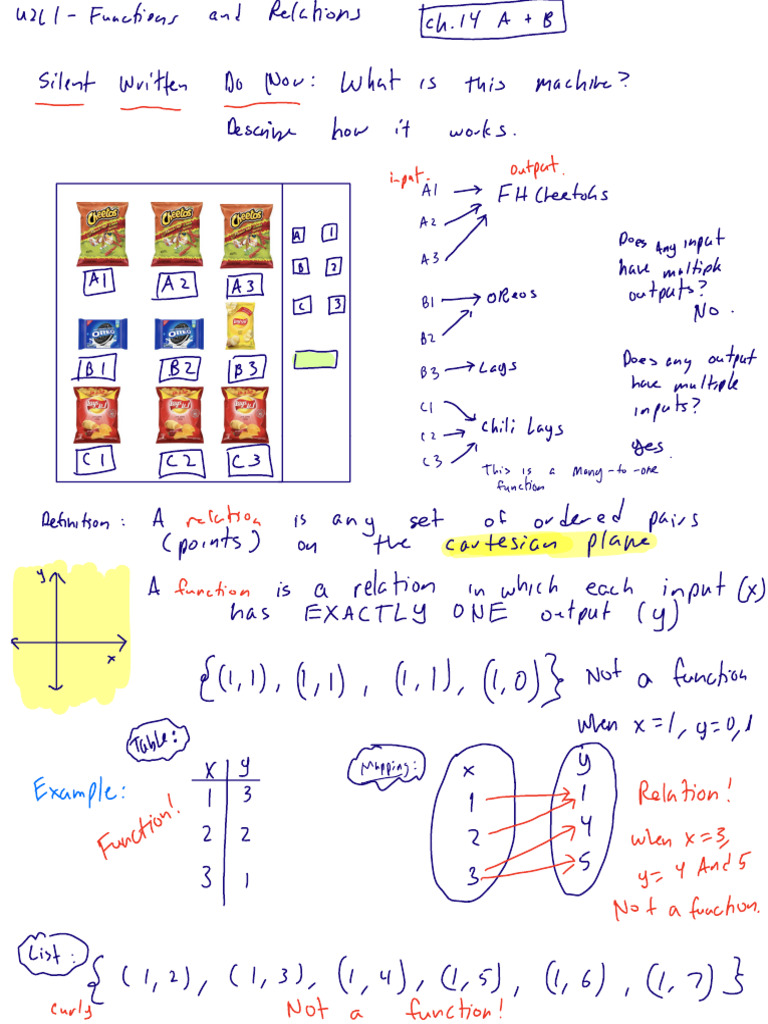 U2L1 - Functions and Relations
ch.14 A + B
Silent Written Do Now: What is this machine?
Describe how it works.
input.
output.
A1
A2
A3
FH Cheetohs
B1
B2
OReos
B3
Lays
C1
C2
C3
Chili Lays
This is a Many-to-one
function
Does any input
have multiple
outputs?
No.
Does any output
have multiple
inputs?
yes.
Cheetos Cheetos Cheetos
A1 A2 A3
B1 B2 B3
Lay's Lay's
C1 C2 C3
A 1
B 2
C 3
Definition: A relation is any set of ordered pairs
(points) on the cartesian plane
A function is a relation in which each input (x)
has EXACTLY ONE output (y)
y
x
{(1,1), (1,1), (1,1), (1,0)} Not a function
when x=1, y=0,1
Table:
Example:
Function!
x y
1 3
2 2
3 1
Mapping:
x y
1 1
2 4
3 5
Relation!
when x=3,
y= 4 And 5
Not a function.
List:
{(1,2), (1,3), (1,4), (1,5), (1,6), (1,7)}
curly
Not a function!